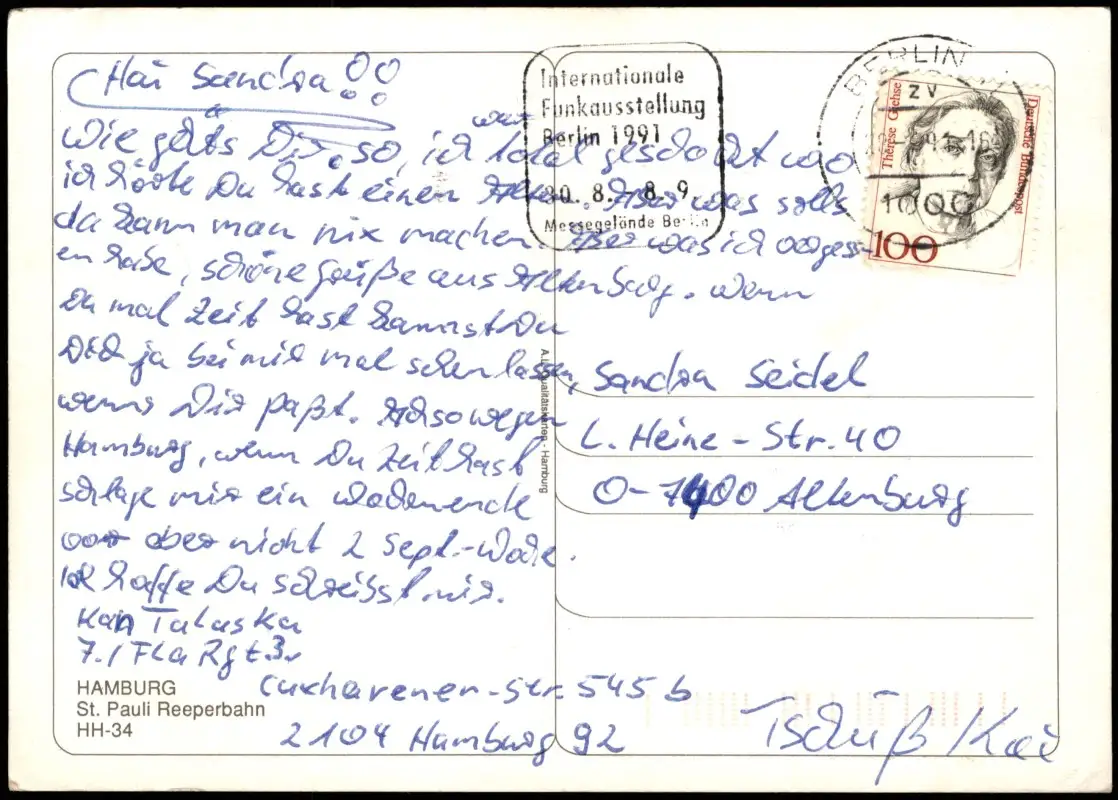 Hai Sandra!!
Wie gehts Dir, so, ich war total geschockt wo
ich hörte Du hast einen Aber was solls
da kann man nix machen. Aber was ich vergess-
en habe, schöne Grüße aus Altenburg. Wenn
Du mal Zeit hast kannst Du
Dich ja bei mir mal sehen lassen,
wenns Dir paßt. Also wegen
Hamburg, wenn Du Zeit hast
schlage mir ein Wochenende
vor aber nicht 2 Sept.-Woche.
Ich hoffe Du schreibst mir.
Kan Talaska
7./FlaRgt.3.
Cuxhavener-Str. 545 b
2104 Hamburg 92
Tschüß Kai
HAMBURG
St. Pauli Reeperbahn
HH-34
A. Qualitätskarten · Hamburg
Internationale
Funkausstellung
Berlin 1991
30. 8. - 8. 9
Messegelände Berlin
BERLIN
ZV
1000
Therese Giehse
Deutsche Bundespost
100
Sandra Seidel
L. Heine-Str. 40
O-7400 Altenburg